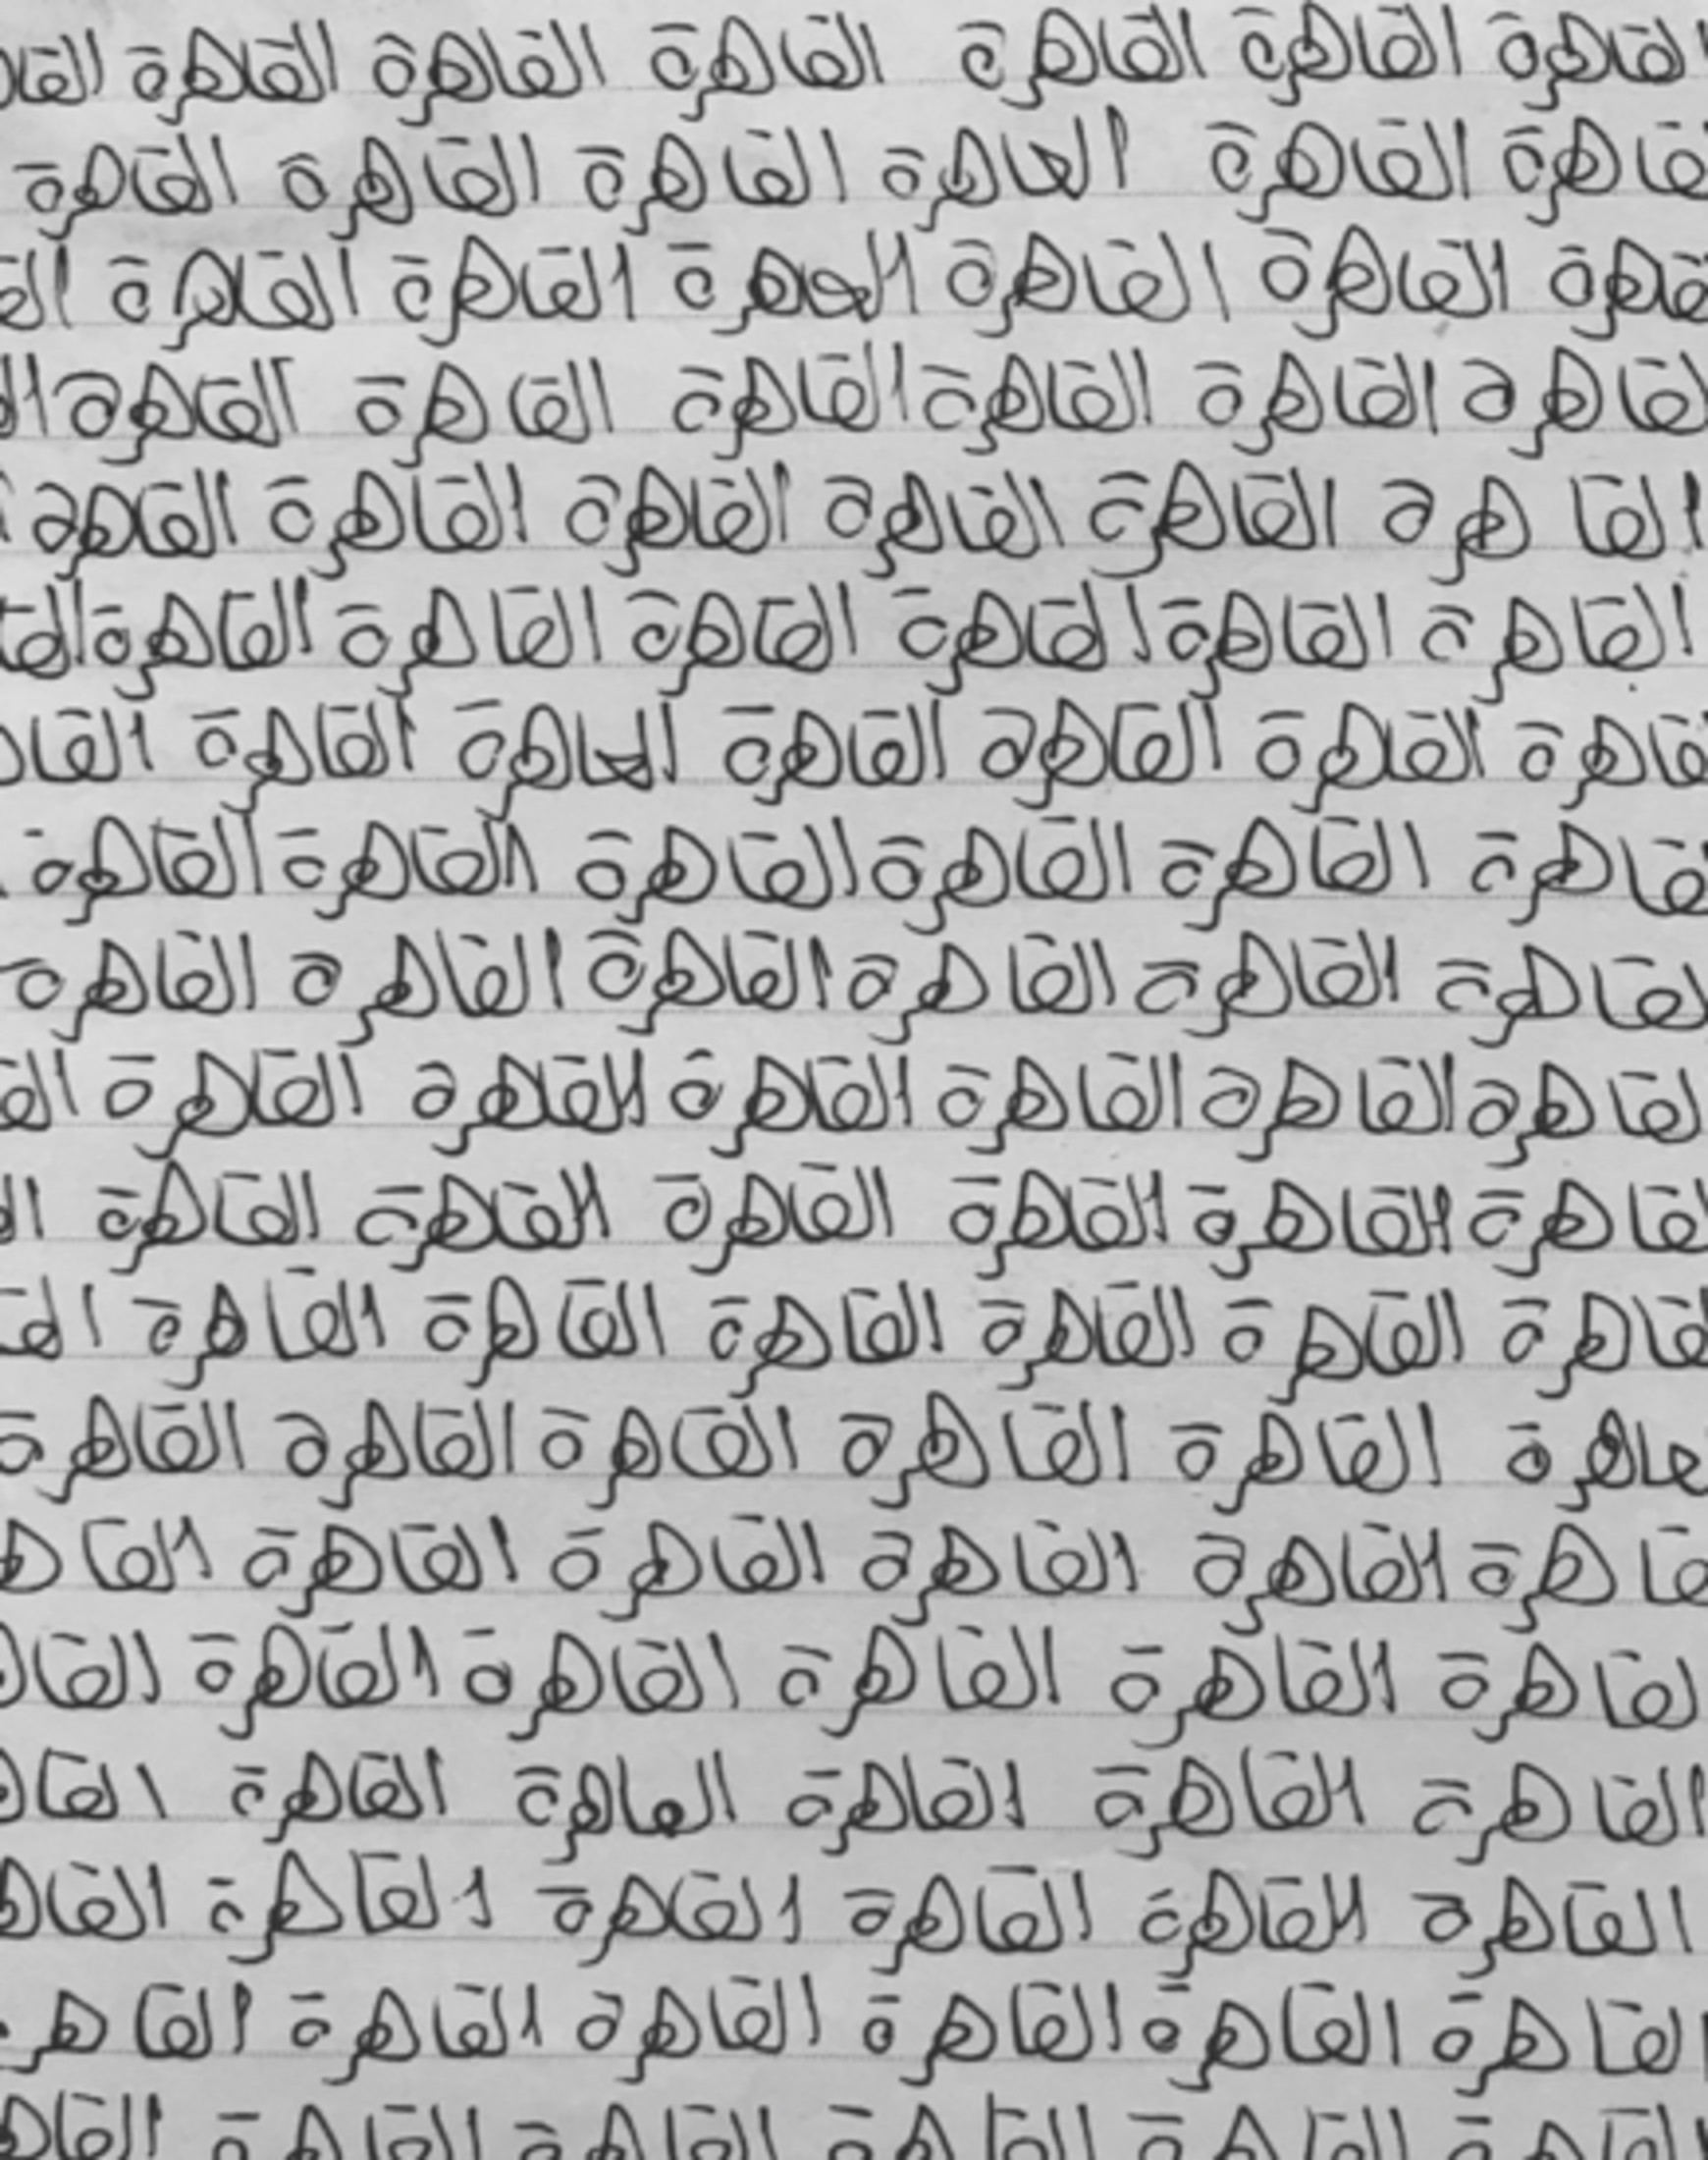 القاهرة القاهرة القاهرة القاهرة القاهرة القاهرة
القاهرة القاهرة القاهرة القاهرة القاهرة
القاهرة القاهرة القاهرة القاهرة القاهرة
القاهرة القاهرة القاهرة القاهرة القاهرة القاهرة
القاهرة القاهرة القاهرة القاهرة القاهرة القاهرة
القاهرة القاهرة القاهرة القاهرة القاهرة القاهرة
القاهرة القاهرة القاهرة القاهرة القاهرة
القاهرة القاهرة القاهرة القاهرة القاهرة
القاهرة القاهرة القاهرة القاهرة القاهرة
القاهرة القاهرة القاهرة القاهرة القاهرة القاهرة
القاهرة القاهرة القاهرة القاهرة القاهرة القاهرة
القاهرة القاهرة القاهرة القاهرة القاهرة
القاهرة القاهرة القاهرة القاهرة القاهرة
القاهرة القاهرة القاهرة القاهرة
القاهرة القاهرة القاهرة القاهرة
القاهرة القاهرة القاهرة القاهرة القاهرة
القاهرة القاهرة القاهرة القاهرة القاهرة
القاهرة القاهرة القاهرة القاهرة القاهرة